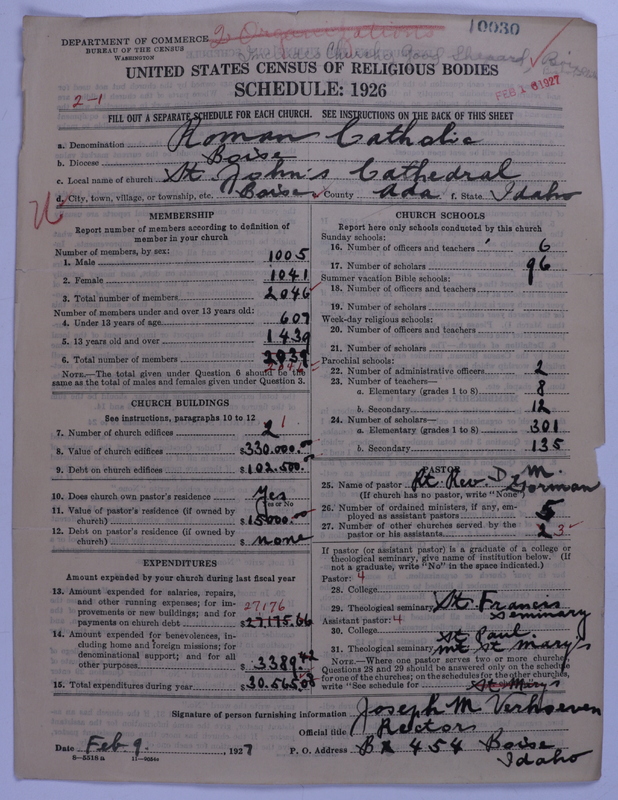 2 Organizations
10030
DEPARTMENT OF COMMERCE
BUREAU OF THE CENSUS
WASHINGTON
Includes Church Good Shepard,
UNITED STATES CENSUS OF RELIGIOUS BODIES
SCHEDULE: 1926
2-1
FEB 1927
FILL OUT A SEPARATE SCHEDULE FOR EACH CHURCH. SEE INSTRUCTIONS ON THE BACK OF THIS SHEET
a. Denomination Roman Catholic
b. Diocese Boise
c. Local name of church St John's Cathedral
d. City, town, village, or township, etc. Boise County Ada f. State Idaho
MEMBERSHIP
Report number of members according to definition of
member in your church
Number of members, by sex:
1. Male 1005
2. Female 1041
3. Total number of members 2046
Number of members under and over 13 years old:
4. Under 13 years of age 607
5. 13 years old and over 1439
6. Total number of members 2039
2046
NOTE.—The total given under Question 6 should be the
same as the total of males and females given under Question 3.
CHURCH BUILDINGS
See instructions, paragraphs 10 to 12
7. Number of church edifices 2 1
8. Value of church edifices $330.000.00
9. Debt on church edifices $102.500.00
10. Does church own pastor's residence Yes
Yes or No
11. Value of pastor's residence (if owned by
church) $15000.00
12. Debt on pastor's residence (if owned by
church) $ none
EXPENDITURES
Amount expended by your church during last fiscal year
13. Amount expended for salaries, repairs,
and other running expenses; for im-
provements or new buildings; and for
payments on church debt 27176 $27175.66
14. Amount expended for benevolences, in-
cluding home and foreign missions; for
denominational support; and for all
other purposes $3389.42
15. Total expenditures during year $30.565.08
CHURCH SCHOOLS
Report here only schools conducted by this church
Sunday schools:
16. Number of officers and teachers 6
17. Number of scholars 96
Summer vacation Bible schools:
18. Number of officers and teachers
19. Number of scholars
Week-day religious schools:
20. Number of officers and teachers
21. Number of scholars
Parochial schools:
22. Number of administrative officers 2
23. Number of teachers—
a. Elementary (grades 1 to 8) 8
b. Secondary 12
24. Number of scholars—
a. Elementary (grades 1 to 8) 301
b. Secondary 135
PASTOR
25. Name of pastor Rt. Rev. D. M. Gorman
(If church has no pastor, write "None")
26. Number of ordained ministers, if any, em-
ployed as assistant pastors 5
27. Number of other churches served by the
pastor or his assistants 2 3
If pastor (or assistant pastor) is a graduate of a college or
theological seminary, give name of institution below. (If
not a graduate, write "No" in the space indicated.)
Pastor: 4
28. College
29. Theological seminary St. Francis Seminary
Assistant pastor: 4
30. College
St Paul
31. Theological seminary Mt St Mary's
NOTE.—Where one pastor serves two or more churches,
Questions 28 and 29 should be answered only on the schedule
for one of the churches; on the schedules for the other churches,
write "See schedule for St Marys
Signature of person furnishing information Joseph M Verhoeven
Official title Rector
Date Feb 9, 1927 P. O. Address Bx 454 Boise
Idaho
8—5518 a 11—9054